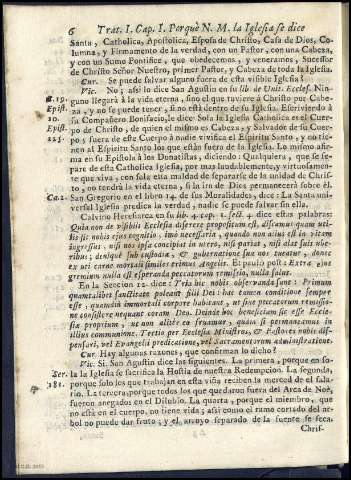 6 Trat. I. Cap. I. Porquè N. M. la Iglesia se dice
Santa, Catholica, Apostolica, Esposa de Christo, Casa de Dios, Co-
lumna, y Firmamento de la verdad, con un Pastor, con una Cabeza,
y con un Sumo Pontifice, que obedecemos, y veneramos, Sucesor
de Christo Señor Nuestro, primer Pastor, y Cabeza de toda la Iglesia.
Cur. Se puede salvar alguno fuera de esta visible Iglesia?
Vic. No; así lo dice San Agustin en su lib. de Unit. Eccles. Nin-
guno llegará à la vida eterna, sino el que tuviere à Christo por Cabe-
za, y no se puede tener, si no está dentro de su Iglesia. Escriviendo à
su Compañero Bonifacio, le dice: Sola la Iglesia Catholica es el Cuer-
po de Christo, de quien el mismo es Cabeza, y Salvador de su Cuer-
po; fuera de este Cuerpo à nadie vivifica el Espiritu Santo, y no tie-
nen al Espiritu Santo los que están fuera de la Iglesia. Lo mismo afir-
ma en su Epistola à los Donatistas, diciendo: Qualquiera, que se sepa-
re de esta Catholica Iglesia, por mas laudablemente, y virtuosamen-
te que viva, con sola esta maldad de separarse de la unidad de Chris-
to, no tendrá la vida eterna, si la ira de Dios permanecerá sobre él.
San Gregorio en el libro 14. de sus Moralidades, dice: La Santa uni-
versal Iglesia predica la verdad; nadie se puede salvar sin ella.
Calvino Heresiarca en su lib. 4. cap. 1. sess. 4. dice estas palabras:
Quia non de visibili Ecclesia disserere propositum est, discamus quam uti-
lis sit nobis ejus cognitio, imò necessaria, quando non alius est in vitam
ingressus, nisi nos ipsa concipiat in utero, nisi pariat, nisi alat suis ube-
ribus; denique sub custodia, & gubernatione sua nos tueatur, donec
ex uti carne mortali similes erimus Angelis. Et paulo post: Extra ejus
gremium nulla est speranda peccatorum remissio, nulla salus.
En la Seccion 22. dice: Tria hic nobis observanda sunt: Primum
quantalibet sanctitate polleant filii Dei hac tamen conditione semper
esse, quamdiu immortali corpore habitant, ut sine peccatorum remissio-
ne consistere nequeant coram Deo. Deinde hoc beneficium sic esse Eccle-
siæ proprium, ut non aliter eo fruamur, quàm si permaneamus in
illius communione. Tertiò per Ecclesiæ Ministros, & Pastores nobis dis-
pensari, vel Evangelii predicatione, vel Sacramentorum administratione.
Cur. Hay algunas razones, que confirman lo dicho?
Vic. Si. San Agustin dice las siguientes. La primera, porque en so-
la la Iglesia se sacrifica la Hostia de nuestra Redempcion. La segunda,
porque solo los que trabajan en esta viña reciben la merced de el sala-
rio. La tercera, porque todos los que quedaron fuera del Arca de Noè,
fueron anegados en el Diluvio. La quarta, porque el miembro, que
no está en el cuerpo, no tiene vida; así como el ramo cortado del ar-
bol no puede dar fruto; y el arroyo separado de la fuente se seca.
Chris-